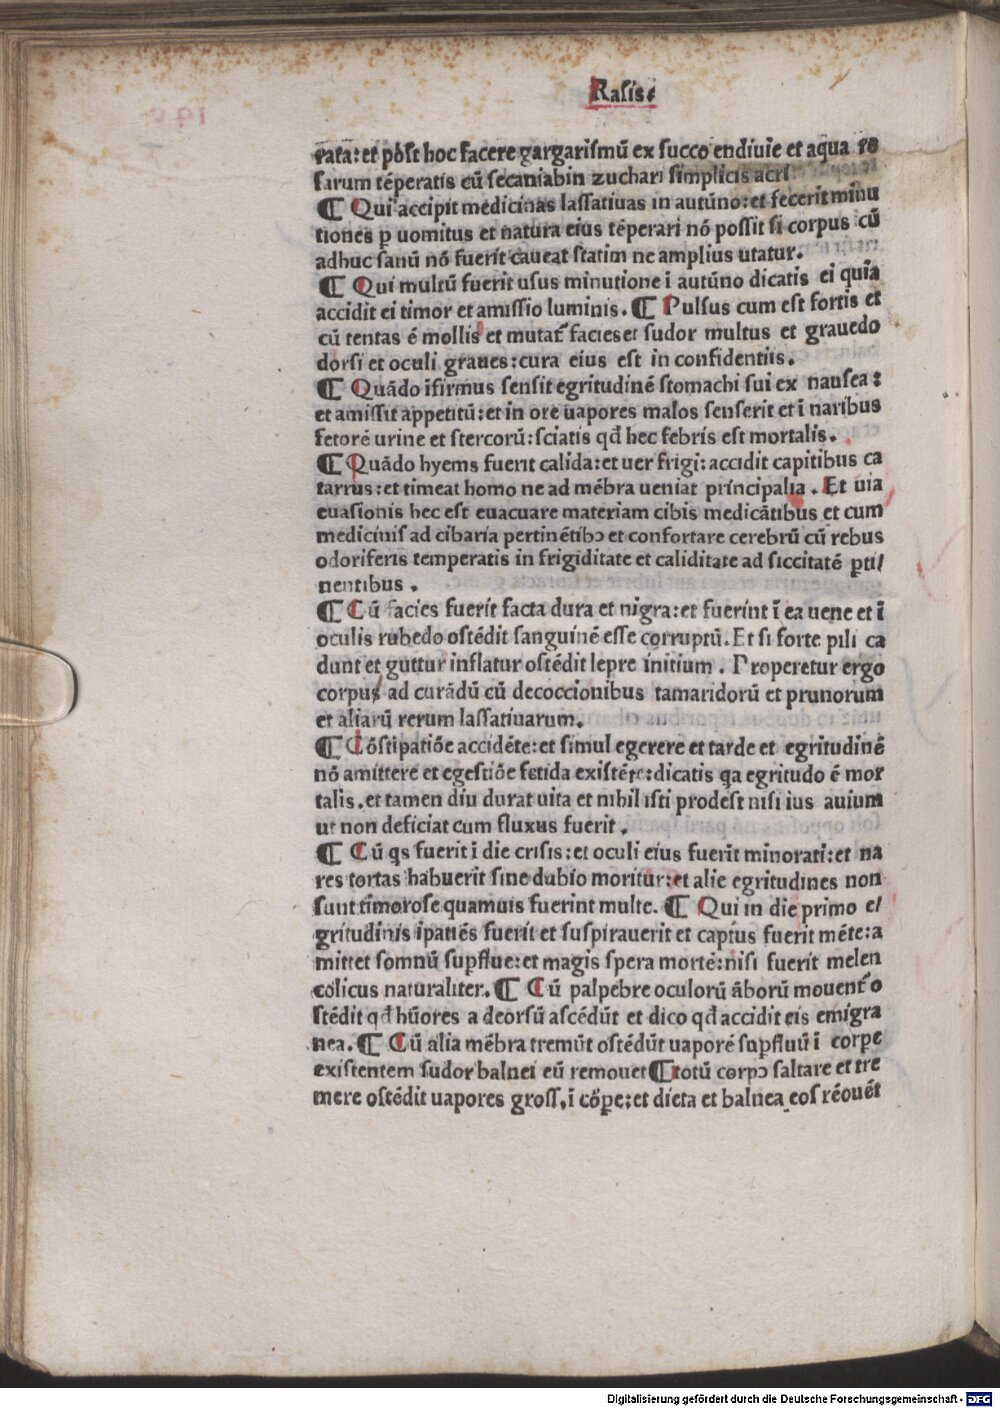 Rasis.
rata: et pōst hoc facere gargarismū ex succo endiuie et aqua ro
sarum tēperatis cū secaniabin zuchari simplicis acri
¶ Qui accipit medicinas lassatiuas in autūno: et fecerit minu
tiones ꝑ uomitus et natura eius tēperari nō possit si corpus cū
adhuc sanū nō fuerit caueat statim ne amplius utatur.
¶ Qui multū fuerit usus minutione ī autūno dicatis ei quia
accidit ei timor et amissio luminis. ¶ Pulsus cum est fortis et
cū tentas ē mollis et mutat᷑ facies et sudor multus et grauedo
dorsi et oculi graues: cura eius est in confidentiis.
¶ Quādo īfirmus sensit egritudinē stomachi sui ex nausea:
et amissit appetitū: et in ore uapores malos senserit et ī naribus
fetorē urine et stercorū: sciatis qđ hec febris est mortalis.
¶ Quādo hyems fuerit calida: et uer frigi: accidit capitibus ca
tarrus: et timeat homo ne ad mēbra ueniat principalia. Et uia
euasionis hec est euacuare materiam cibis medicātibus et cum
medicinis ad cibaria pertinētibꝰ et confortare cerebrū cū rebus
odoriferis temperatis in frigiditate et caliditate ad siccitatē ꝑti/
nentibus.
¶ Cū facies fuerit facta dura et nigra: et fuerint ī ea uene et ī
oculis rubedo ostēdit sanguinē esse corruptū. Et si forte pili ca
dunt et guttur inflatur ostēdit lepre initium. Properetur ergo
corpus ad curādū cū decoccionibus tamaridorū et prunorum
et aliarū rerum lassatiuarum.
¶ Cōstipatiōe accidēte: et simul egerere et tarde et egritudinē
nō amittere et egestiōe fetida existēte: dicatis qa egritudo ē mor
talis. et tamen diu durat uita et nihil isti prodest nisi ius auium
ut non deficiat cum fluxus fuerit.
¶ Cū qs fuerit ī die crisis: et oculi eius fuerit minorati: et na
res tortas habuerit sine dubio moritur: et alie egritudines non
sunt timorose quamuis fuerint multe. ¶ Qui in die primo e/
gritudinis īpatiēs fuerit et suspirauerit et captus fuerit mēte: a
mittet somnū suꝑflue: et magis spera mortē: nisi fuerit melen
colicus naturaliter. ¶ Cū palpebre oculorū āborū mouent᷑ o
stēdit qđ hūores a deorsū ascēdūt et dico qđ accidit eis emigra
nea. ¶ Cū alia mēbra tremūt ostēdūt uaporē suꝑfluū ī corpe
existentem sudor balnei eū remouet ¶ totū corpꝰ saltare et tre
mere ostēdit uapores gross. ī cōꝑe: et dieta et balnea eos rēouēt
Digitalisierung gefördert durch die Deutsche Forschungsgemeinschaft - DFG